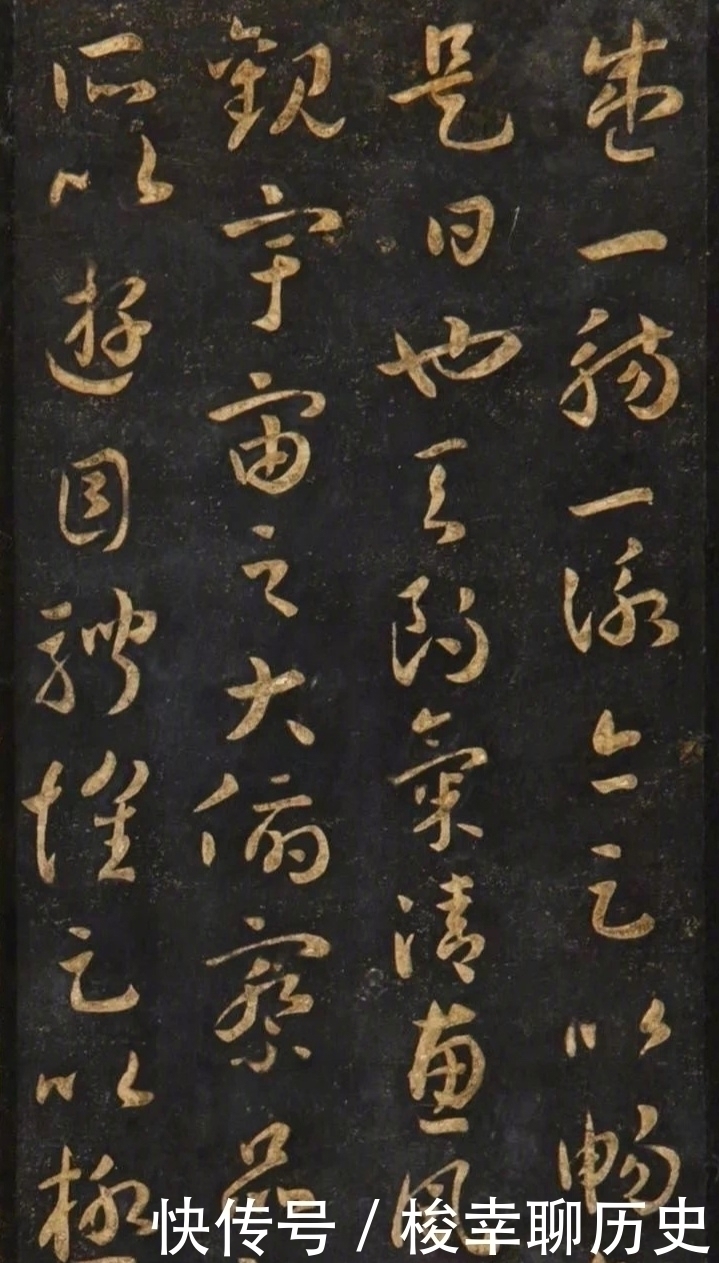 盛一觴一詠亦足以暢
是日也天朗氣清惠風
觀宇宙之大俯察品
所以遊目騁懷足以極
快传号 / 梭幸聊历史